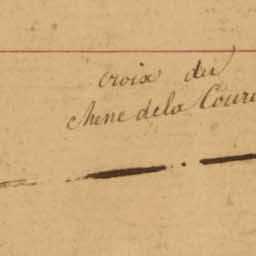 croix du
chene dela Cour